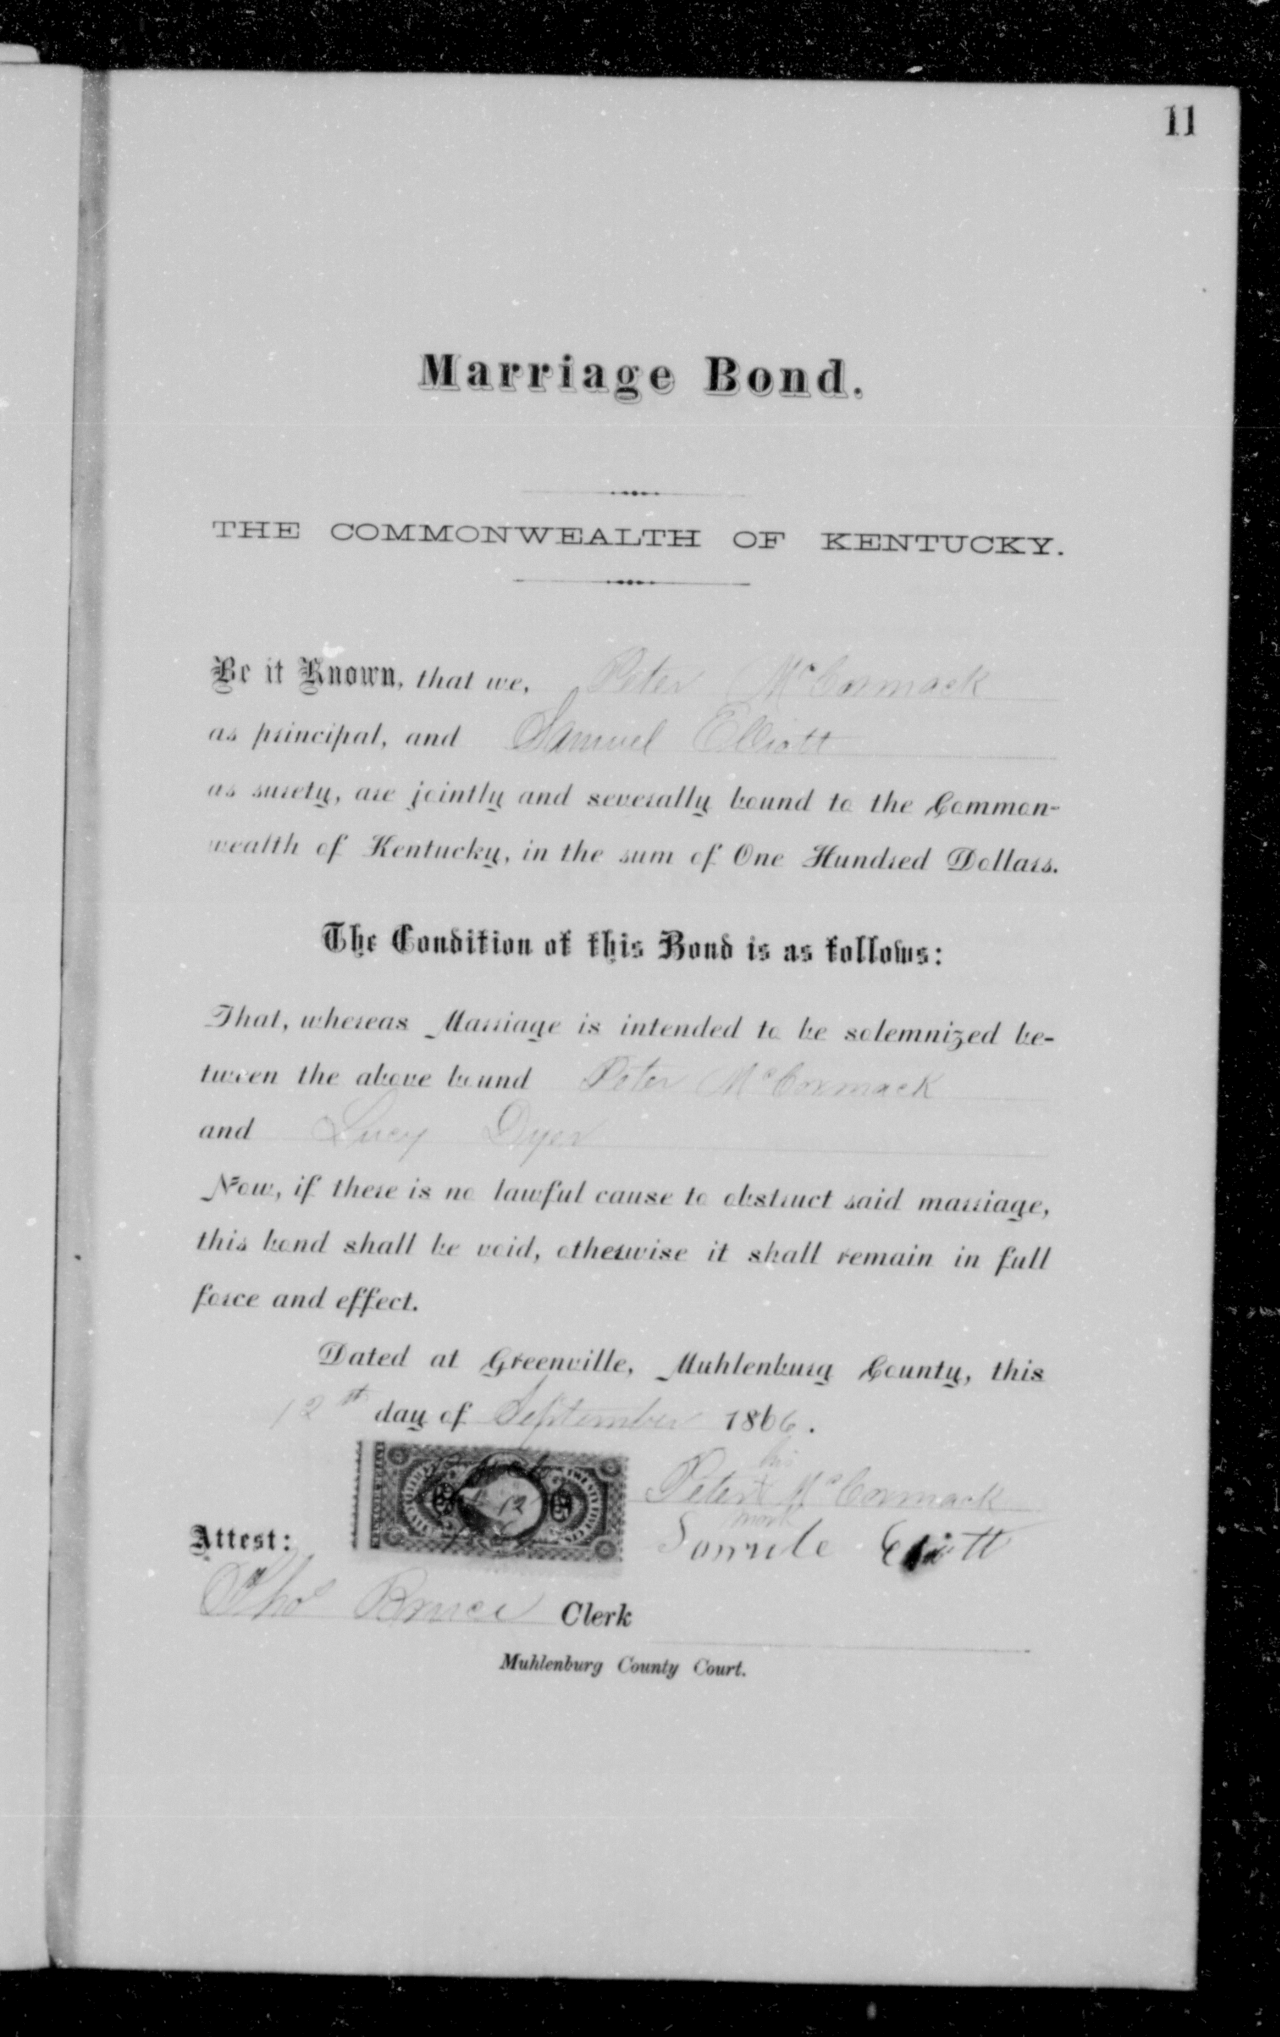 11
Marriage Bond.
THE COMMONWEALTH OF KENTUCKY.
Be it Known, that we, Peter McCormack
as principal, and Samuel Elliott
as surety, are jointly and severally bound to the Common-
wealth of Kentucky, in the sum of One Hundred Dollars.
The Condition of this Bond is as follows:
That, whereas Marriage is intended to be solemnized be-
tween the above bound Peter McCormack
and Lucy Dyer
Now, if there is no lawful cause to obstruct said marriage,
this bond shall be void, otherwise it shall remain in full
force and effect.
Dated at Greenville, Muhlenburg County, this
12th day of September 1866.
his
Peter x McCormack
mark
Attest:
Thos Bruce Clerk
Muhlenburg County Court.